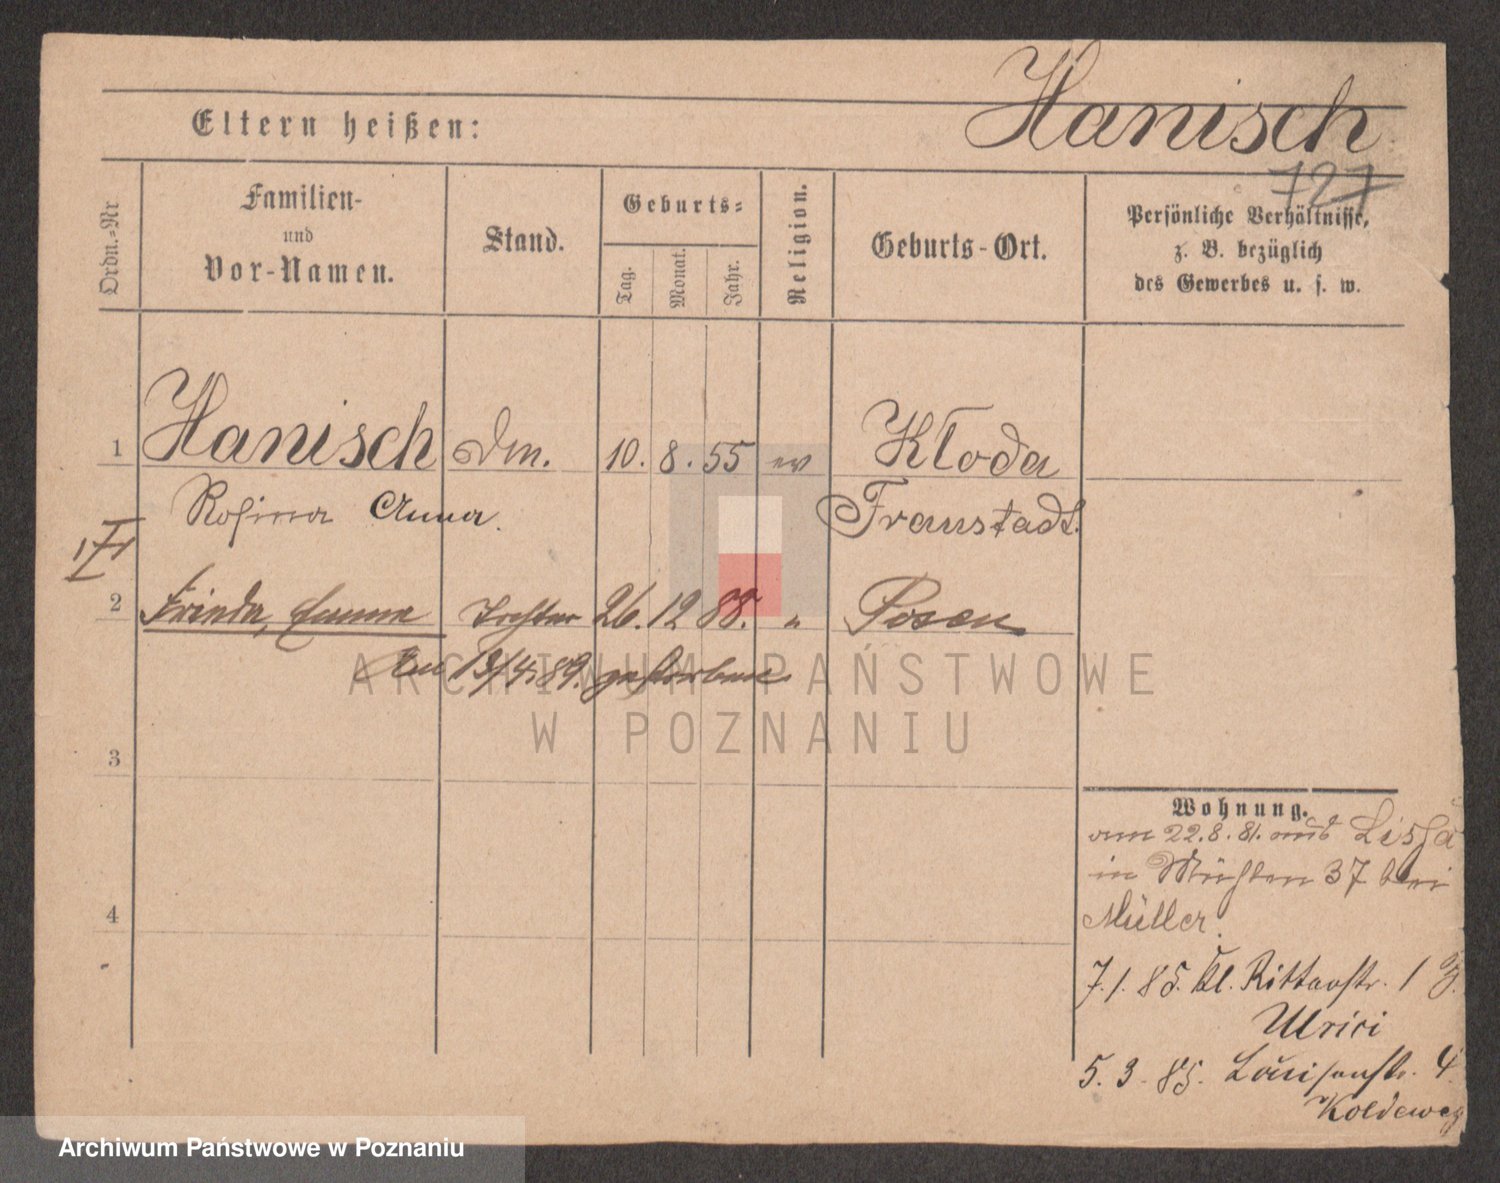 Hanisch
Eltern heißen:
727
Ordn.-Nr
Familien-
und
Vor-Namen.
Stand.
Geburts-
Tag.
Monat.
Jahr.
Religion.
Geburts-Ort.
Persönliche Verhältnisse,
z. B. bezüglich
des Gewerbes u. s. w.
1 Hanisch 10. 8. 55 ev Kloda
Rosina Anna. Fraustadt.
2 Frieda, Emma Tochter 26. 12 88. " Posen
Am 13/4. 89. gestorben
ARCHIWUM PAŃSTWOWE
W POZNANIU
3
4
Wohnung.
am 22.8.81. aus Lissa
in Mühlen 37 bei
Müller.
7.1.85. Kl. Ritterstr. 1
Ulrici
5.3.85. Louisenstr. 4.
Koldeweg
Archiwum Państwowe w Poznaniu